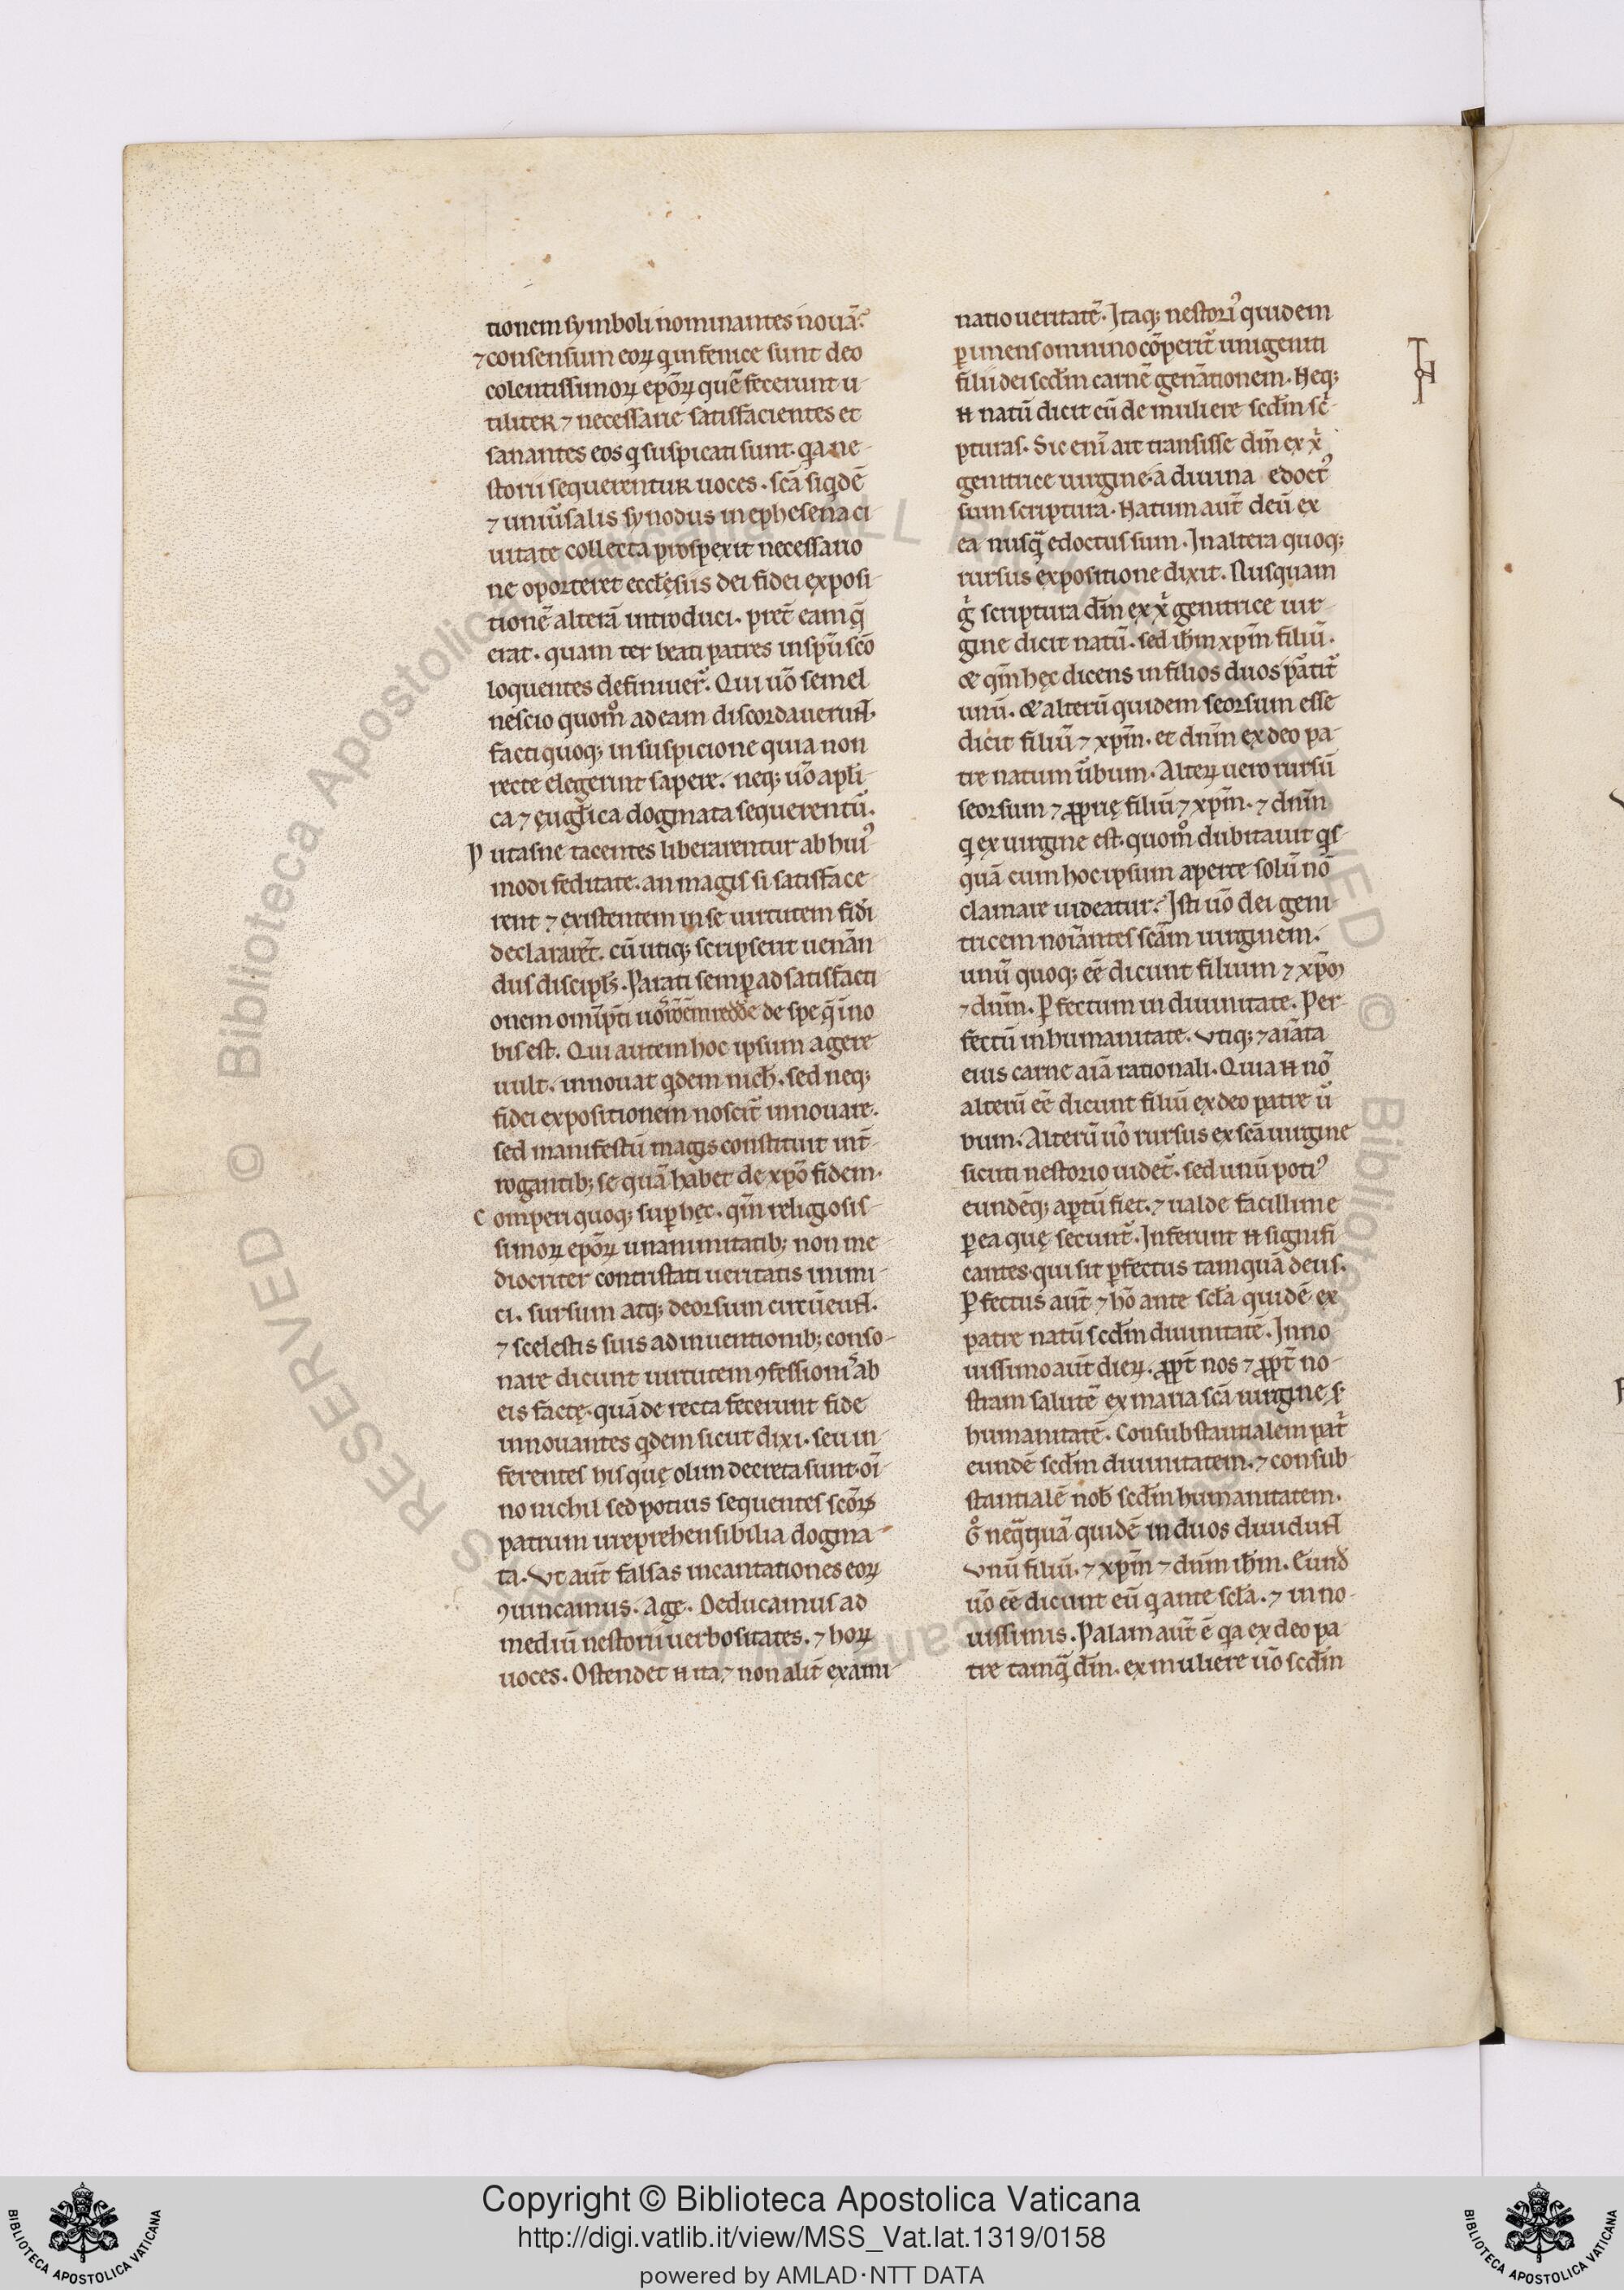 tionem symboli nominantes nouā.
⁊ consensum eoꝝ q̇ in fenice sunt deo
colentissimoꝝ ep̄oꝝ quē fecerunt u-
tiliter ⁊ necessarie satisfacientes et
sanantes eos q̇ suspicati sunt. qͥa ne-
storii sequerentur uoces. sc̄a siqͥdē
⁊ uniūsalis synodus in ephesena ci-
uitate collecta prospexit necessario
ne oporteret eccl̄ęsiis dei fidei exposi-
tionē alterā introduci. pret̄ eam q̄
erat. quam ter beati patres in sp̄u sc̄o
loquentes definiuer̄. Qui uō semel
nescio quom̊ ad eam discordauerunt.
facti quoq; in suspicione quia non
recte elegerint sapere. neq; uō apl̄i-
ca ⁊ euḡlica dogmata sequerentur̄.
Putasne tacentes liberarentur ab huiꝰ
modi feditate. an magis si satisface-
rent ⁊ existentem in se uirtutem fidei
declararēt. cū utiq; scripserit uenān
dus discipl̄s. Parati semꝑ ad satisfacti
onem om̄i pet̄i uō rōem redde de spe q̄ i no
bis est. Qui autem hoc ipsum agere
uult. innouat qͥdem nich̄. sed neq;
fidei expositionem noscit̄ innouare.
sed manifestū magis constituit int̄-
rogantib; se quā habet de xp̄o fidem.
Comperi quoq; suꝑ hęc. qm̄ religosis-
simoꝝ ep̄oꝝ unanimitatib; non me
diocriter contristati ueritatis inimi-
ci. sursum atq; deorsum circūeunt.
⁊ scelestis suis adinuentionib; conso-
nare dicunt uirtutem ꝯfessionis ab
eis factę. quā de recta fecerunt fide
innouantes qͥdem sicut dixi. seu in-
ferentes his quę olim decreta sunt. oī
no nichil sed potius sequentes sc̄oꝝ
patrum irreprehensibilia dogma-
ta. Ut aut̄ falsas incantationes eoꝝ
ꝯuincamus. Age. Deducamus ad
mediū nestorii uerbositates. ⁊ hoꝝ
uoces. Ostendet n̄ ita ⁊ non alit̄ exami-
natio ueritatē. Itaq; nestoriꝰ quidem
ꝑimens omnino cōperit̄ unigeniti
filii dei scd̄m carnē genātionem. Neq;
n̄ natū dicit eū de muliere scd̄m sc̄-
pturas. Sic enī ait transisse dm̄ ex x̄
genitrice uirgine. a diuina edoctꝰ
sum scriptura. Natum aut̄ deū ex
ea nusq̄ edoctus sum. In altera quoq;
rursus expositione dixit. Nusquam
g̊ scriptura dm̄ ex x̄ genitrice uir-
gine dicit natū. sed ih̄m xp̄m filiū.
⁊ qm̄ hęc dicens in filios duos p̄atit̄
unū. ⁊ alterū quidem seorsum esse
dicit filiū ⁊ xp̄m. et dn̄m ex deo pa-
tre natum u̇bum. Alteꝝ uero rursū
seorsum ⁊ ꝓprię filiū ⁊ xp̄m. ⁊ dn̄m
q̇ ex uirgine est. quom̊ dubitauit qͥs-
quā cum hoc ipsum aperte solū nō
clamare uideatur. Isti uō dei geni-
tricem noīantes sc̄am uirginem.
unū quoq; eē dicunt filium ⁊ xp̄m
⁊ dn̄m. ꝑfectum in diuinitate. Per-
fectū in humanitate. Utiq; ⁊ aīata
eius carne aīa rationali. Quia n̄ nō
alterū eē dicunt filiū ex deo patre u̇
bum. Alterū uō rursus ex sc̄a uirgine
sicuti nestorio uidet̄. sed unū potiꝰ
eundēq; aꝑtū fiet. ⁊ ualde facillime
ꝑ ea quę secunt̄. Inferunt n̄ signifi
cantes. qui sit ꝑfectus tamquā deus.
ꝑfectus aut̄ ⁊ hō ante sc̄la quidē ex
patre natū scd̄m diuinitatē. In no
uissimo aut̄ dieꝝ. ꝓpt̄ nos ⁊ ꝓpt̄ no-
stram salutē ex maria sc̄a uirgine s̄
humanitatē. Consubstantialem pat̄
eundē scd̄m diuinitatem. ⁊ consub-
stantialē nob̄ scd̄m humanitatem.
G̊ neq̄quā quidē in duos diuidunt
Unū filiū. ⁊ xp̄m ⁊ dn̄m ih̄m. Eund̄
uō eē dicunt eū q̇ ante sc̄la. ⁊ in no-
uissimis. Palam aut̄ ē qͥa ex deo pa
tre tamq̄ dm̄. ex muliere uō scd̄m
Biblioteca Apostolica Vaticana ALL RIGHTS RESERVED ©
Copyright © Biblioteca Apostolica Vaticana
http://digi.vatlib.it/view/MSS_Vat.lat.1319/0158
powered by AMLAD·NTT DATA
BIBLIOTECA APOSTOLICA VATICANA
BIBLIOTECA APOSTOLICA VATICANA